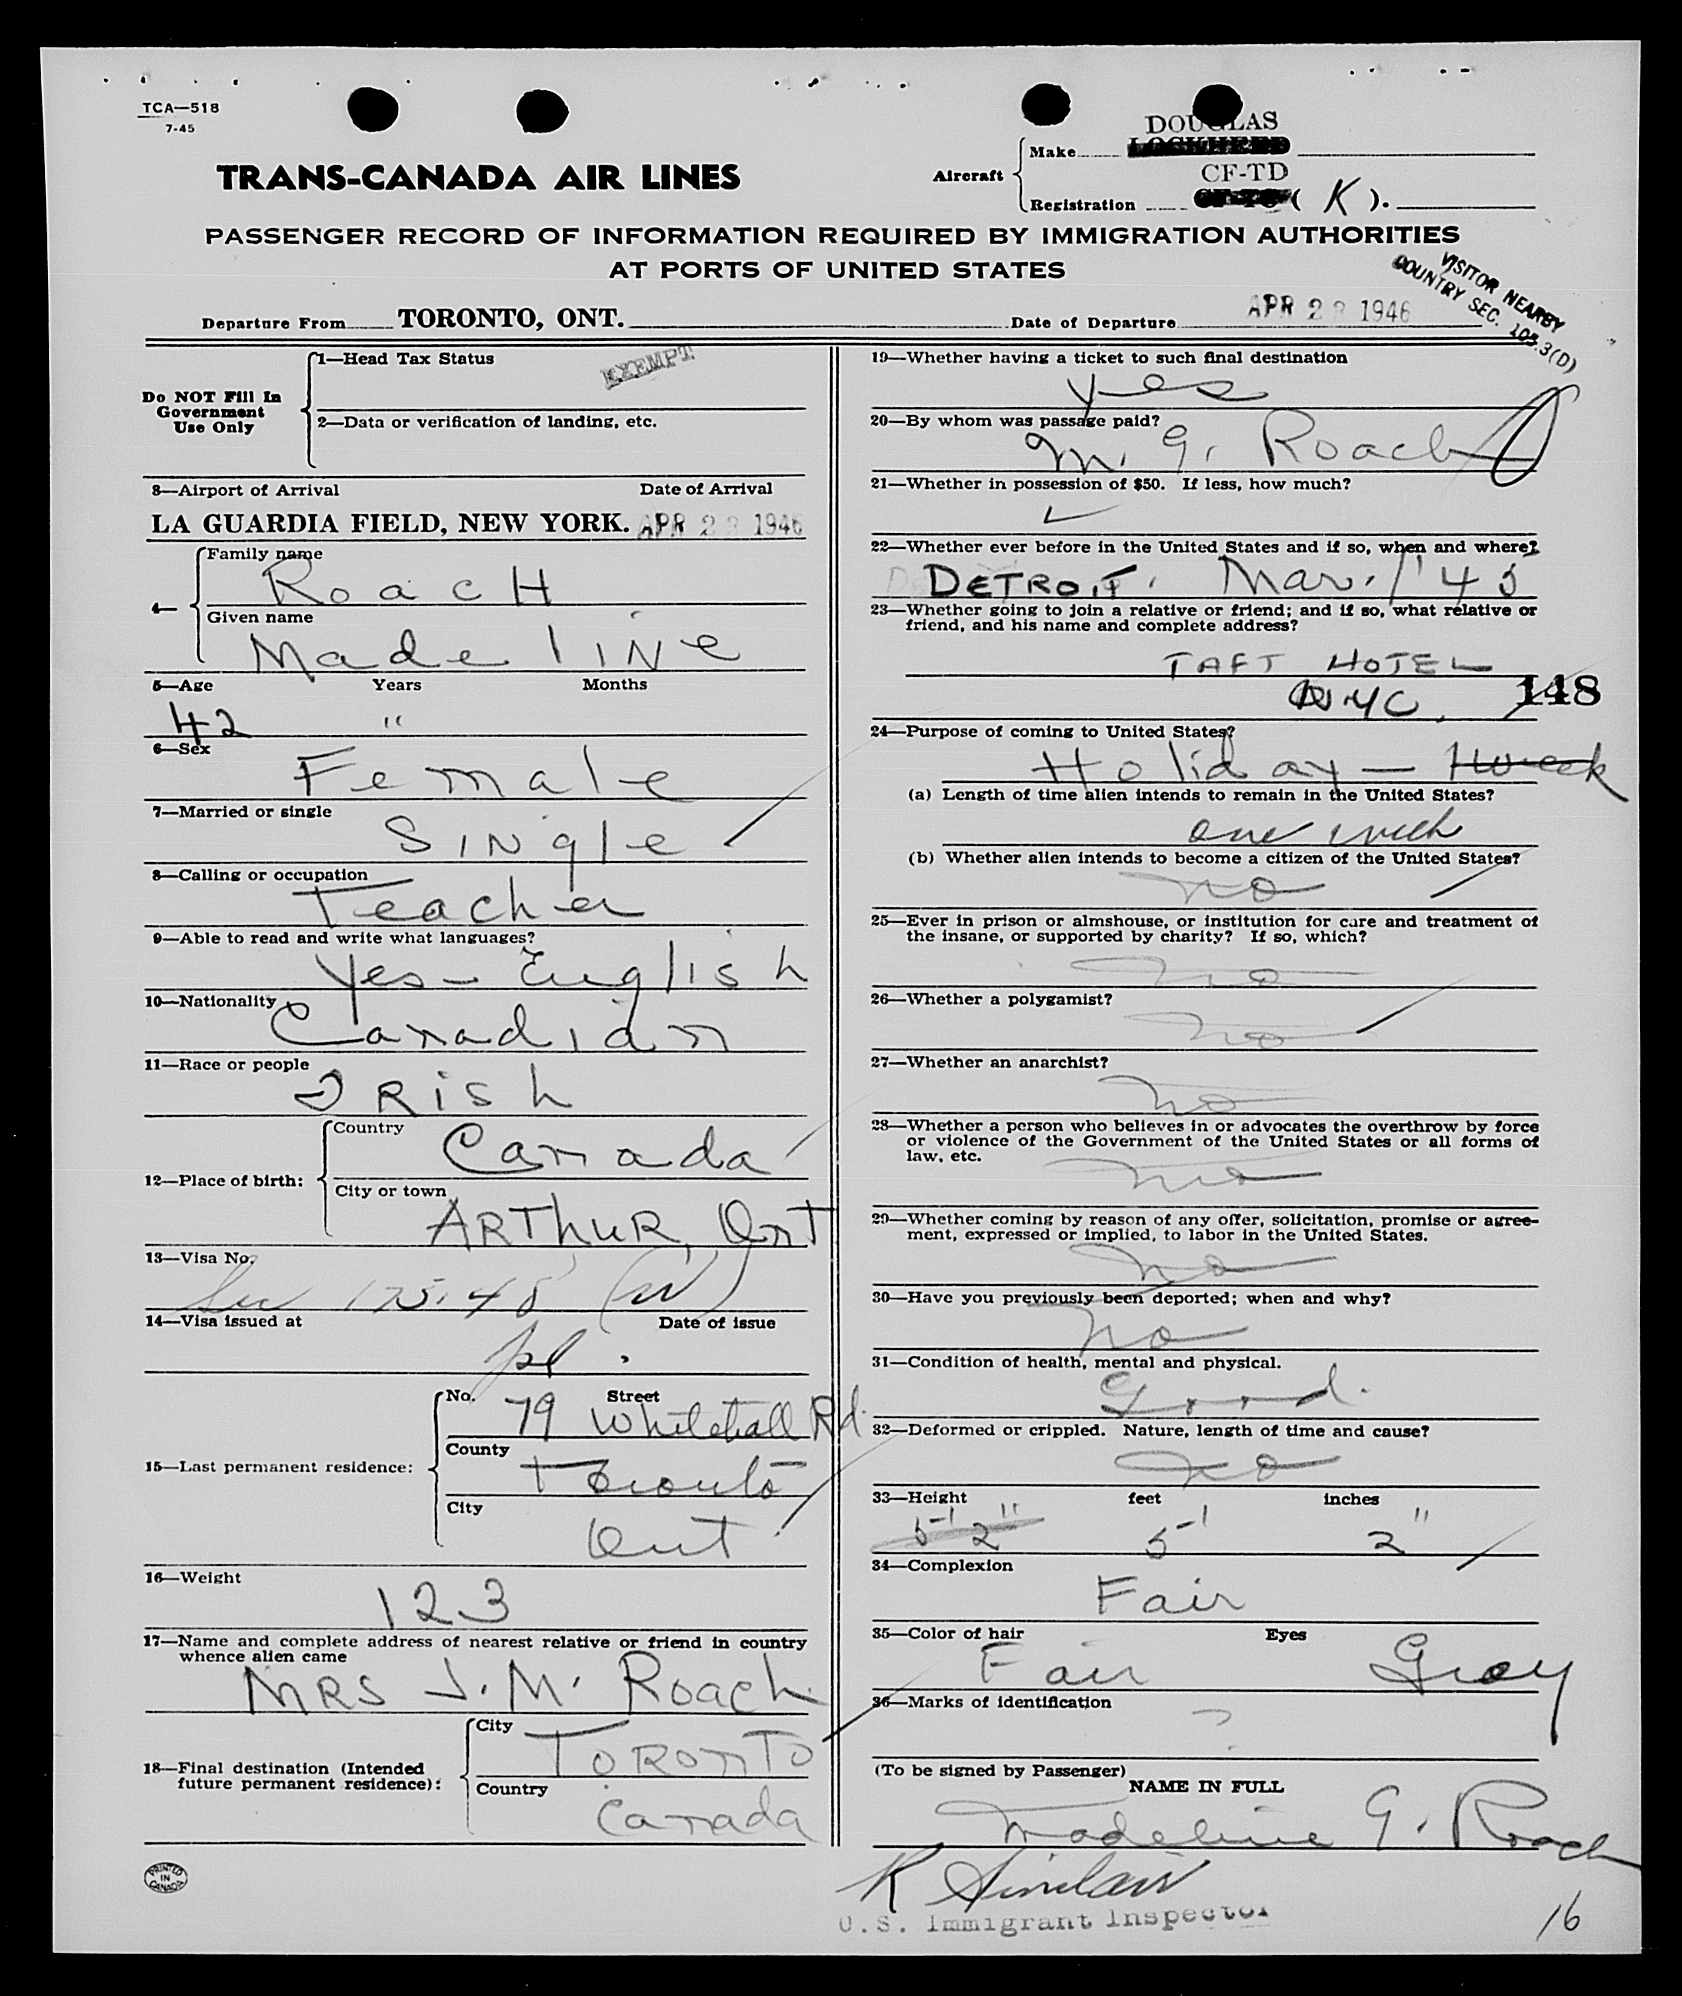 TCA—518
7-45
TRANS-CANADA AIR LINES
Aircraft
DOUGLAS
Make
CF-TD
Registration ( K ).
PASSENGER RECORD OF INFORMATION REQUIRED BY IMMIGRATION AUTHORITIES
AT PORTS OF UNITED STATES
VISITOR NEARBY
COUNTRY SEC. 105.3(D)
Departure From TORONTO, ONT.
Date of Departure APR 1946
Do NOT Fill In
Government
Use Only
1—Head Tax Status EXEMPT
2—Data or verification of landing, etc.
3—Airport of Arrival Date of Arrival
LA GUARDIA FIELD, NEW YORK. APR 1946
4— Family name
RoacH
Given name
MadeliNe
5—Age Years Months
42 "
6—Sex
Female
7—Married or single
SiNgle
8—Calling or occupation
Teacher
9—Able to read and write what languages?
Yes - English
10—Nationality
Canadian
11—Race or people
IRish
12—Place of birth: Country
Canada
City or town
ARThUR, Ont
13—Visa No.
14—Visa issued at Date of issue
15—Last permanent residence: No. Street
79 Whitehall Rd.
County
Toronto
City
Ont.
16—Weight
123
17—Name and complete address of nearest relative or friend in country
whence alien came
MRS J. M. Roach
18—Final destination (Intended
future permanent residence): City
TORONTO
Country
Canada
PRINTED
IN
CANADA
19—Whether having a ticket to such final destination
yes
20—By whom was passage paid?
M. G. Roach
21—Whether in possession of $50. If less, how much?
22—Whether ever before in the United States and if so, when and where?
DETROIT. Mar. / '45
23—Whether going to join a relative or friend; and if so, what relative or
friend, and his name and complete address?
TAFT HOTEL
NYC. 148
24—Purpose of coming to United States?
Holiday — 1 week
(a) Length of time alien intends to remain in the United States?
one week
(b) Whether alien intends to become a citizen of the United States?
no
25—Ever in prison or almshouse, or institution for care and treatment of
the insane, or supported by charity? If so, which?
no
26—Whether a polygamist?
no
27—Whether an anarchist?
no
28—Whether a person who believes in or advocates the overthrow by force
or violence of the Government of the United States or all forms of
law, etc.
no
29—Whether coming by reason of any offer, solicitation, promise or agree-
ment, expressed or implied, to labor in the United States.
no
30—Have you previously been deported; when and why?
no
31—Condition of health, mental and physical.
Good.
32—Deformed or crippled. Nature, length of time and cause?
no
33—Height feet inches
5' 2" 5' 2"
34—Complexion
Fair
35—Color of hair Eyes
Fair Grey
36—Marks of identification
?
(To be signed by Passenger)
NAME IN FULL
Madeline G. Roach
R Sinclair
U.S. Immigrant Inspector
16